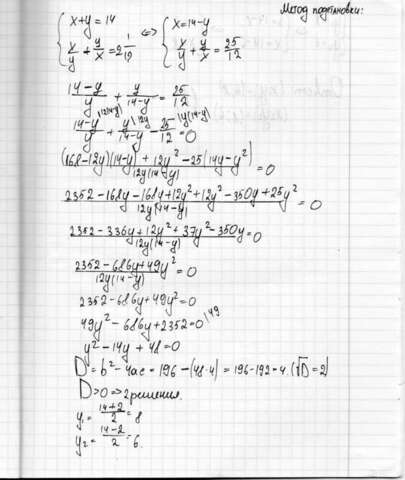 Метод подстановки:
{ x+y=14 <=> { x=14-y
{ x/y + y/x = 2 1/12 { x/y + y/x = 25/12
(14-y)/y + y/(14-y) = 25/12
(14-y)/y |12(14-y) + y/(14-y) |12y - 25/12 |y(14-y) = 0
((168-12y)(14-y) + 12y² - 25(14y-y²))/(12y(14-y)) = 0
(2352-168y-168y+12y²+12y²-350y+25y²)/(12y(14-y)) = 0
(2352-336y+12y²+37y²-350y)/(12y(14-y)) = 0
(2352-686y+49y²)/(12y(14-y)) = 0
2352-686y+49y²=0
49y²-686y+2352=0 |49
y²-14y+48=0
D=b²-4ac=196-(48·4)=196-192=4. (√D=2)
D>0 => 2 решения.
y₁= (14+2)/2 = 8
y₂= (14-2)/2 = 6.